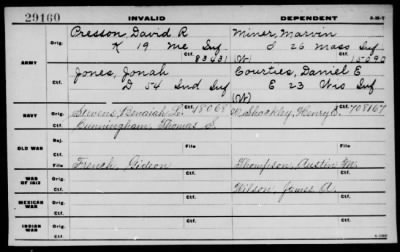 29160 INVALID DEPENDENT
ARMY
Orig. Cresson, David R Miner, Marvin
K 19 Me Inf D 26 Mass Inf
Ctf. 83431 (W) 15090
Orig. Jones, Jonah Courties, Daniel E
D 54 Ind Inf E 23 Wis Inf
Ctf. (W)
NAVY
Orig. Stevens, Benaiah L. 18068 Shackley, Henry E. 708167
Ctf. Cunningham, Thomas S.
OLD WAR
File File
French, Gideon Thompson, Austin
WAR OF 1812
Orig.
Ctf. Wilson, James A.
MEXICAN WAR
Orig.
Ctf.
INDIAN WAR
Orig.
Ctf.